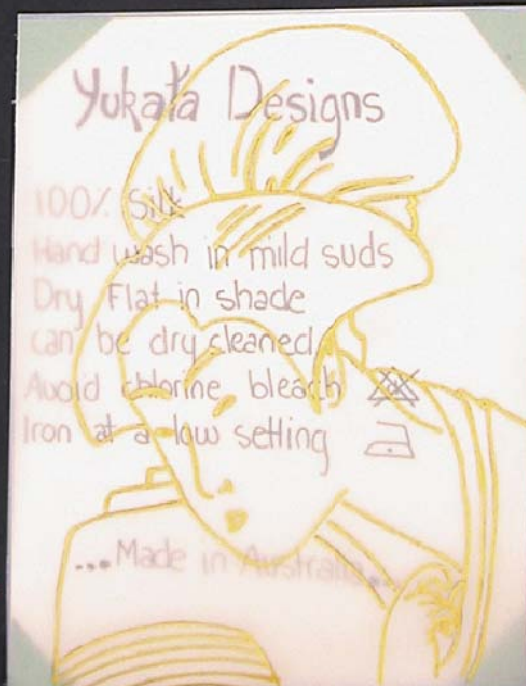 Yukata Designs
100% Silk
Hand wash in mild suds
Dry Flat in shade
can be dry cleaned.
Avoid chlorine bleach
Iron at a low setting
...Made in Australia...